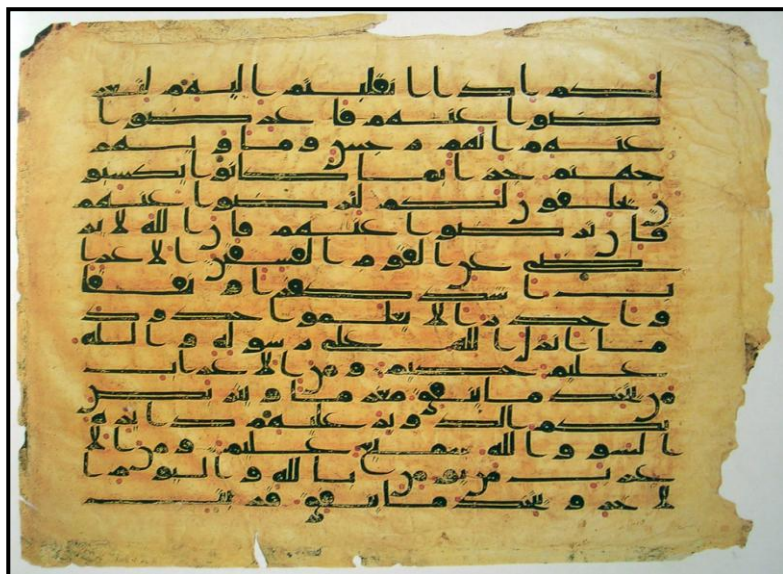 لكم اذا انقلبتم اليهم لتعر
ضوا عنهم فاعرضوا
عنهم انهم رجس وماويهم
جهنم جزا بما كانوا يكسبو
ن يحلفون لكم لترضوا عنهم
فان ترضوا عنهم فان الله لا ير
ضى عن القوم الفسقين الاعرا
ب اشد كفرا ونفاقا
واجدر الا يعلموا حدود
ما انزل الله على رسوله والله
عليم حكيم ومن الاعراب
من يتخذ ما ينفق مغرما ويتربص
بكم الدوير عليهم دايرة
السو والله سميع عليم ومن الا
عراب من يومن بالله واليوم ا
لاخر ويتخذ ما ينفق قربت